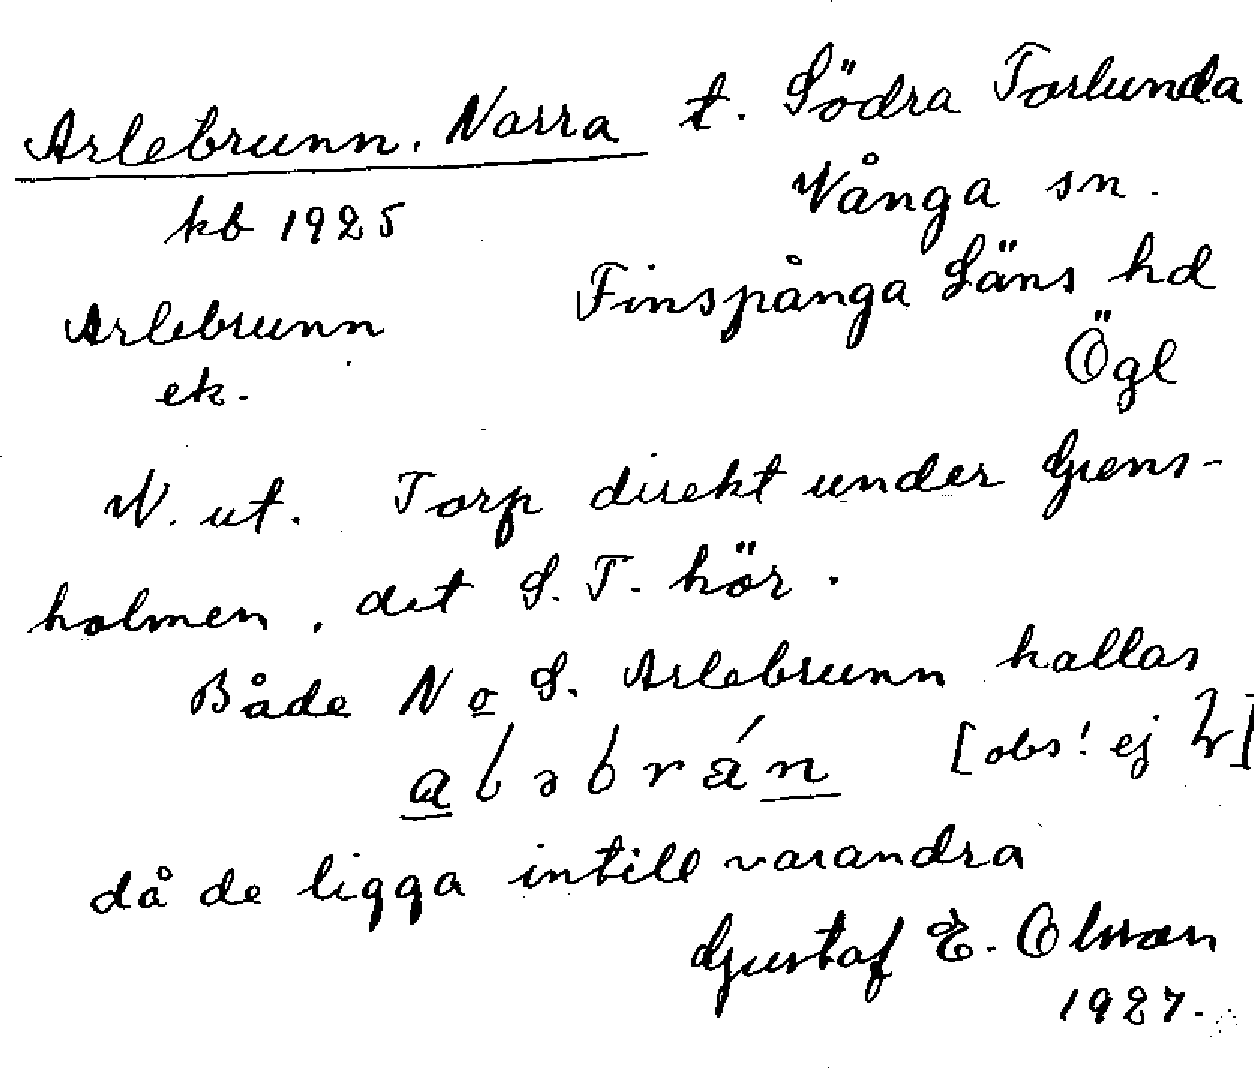 Arlebrunn. Norra t. Södra Torlunda
kb 1925 Vånga sn.
Arlebrunn Finspånga Läns hd
ek. Ögl
N. ut. Torp direkt under Grens-
holmen, det S. T. hör.
Både N o S. Arlebrunn kallas
abəbrán [obs! ej
då de ligga intill varandra
Gustaf E. Olsson
1927.